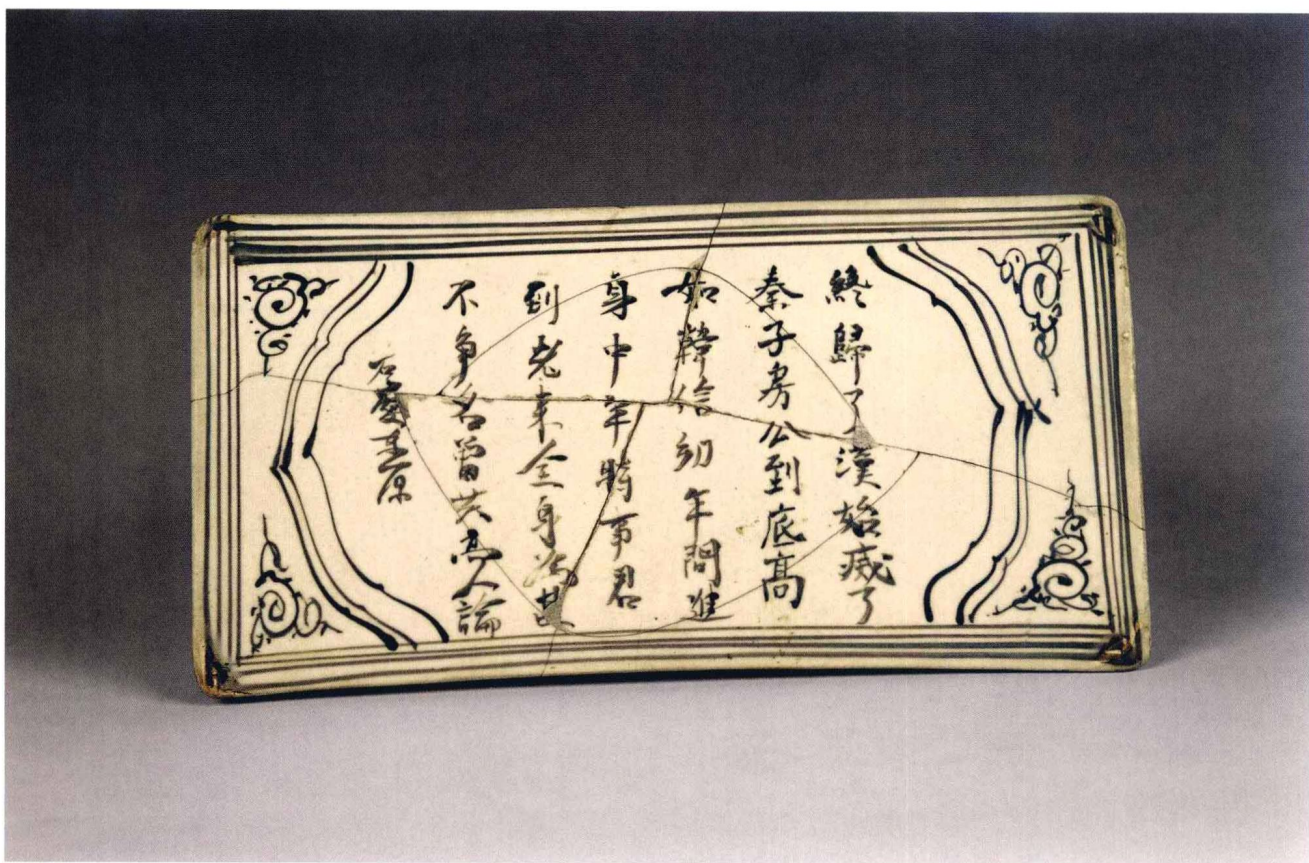 終歸了漢始滅了
秦子房公到底高
如韓信初年間進
身中年時事君
到老來全身
不爭名留共高人論
右慶東原